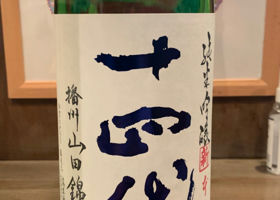 純米吟醸
十四代
播州 山田錦